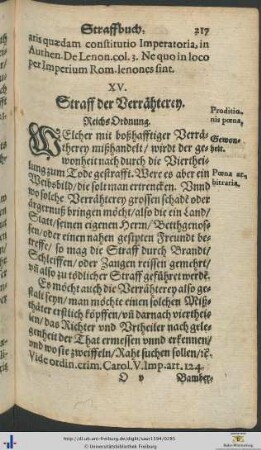 Straffbuch, 217
aris quædam constitutio Imperatoria, in
Authen. De Lenon. col. 3. Ne quo in loco
per Imperium Rom. lenones sint.
XV.
Straff der Verrähterey.
Reichs Ordnung.
WElcher mit boßhafftiger Verrä-
therey mißhandelt / wirdt der ge-
wonheit nach durch die Viertthei-
lung zum Tode gestrafft. Were es aber ein
Weibsbild / die solt man ertrencken. Vnnd
wo solche Verrähterey grossen schade oder
ärgernuß bringen möcht / also die ein Land /
Statt / seinen eigenen Herrn / Betthgenos-
sen / oder einen nahen gesipten Freundt be-
treffe / so mag die Straff durch Brandt /
Schleiffen / oder Zangen reissen gemehrt /
vñ also zu tödlicher Straff geführet werdē.
Es möcht auch die Verrähterey also ge-
stalt seyn / man möchte einen solchen Miß-
thäter erstlich köpffen / vñ darnach viertthei-
len / das Richter vnd Vrtheiler nach gele-
genheit der That ermessen vnnd erkennen /
vnd wo sie zweiffeln / Raht suchen sollen / ꝛc.
Vide ordin. crim. Carol. V. Imp. art. 124.
O v Bamber-
Proditio-
nis pœna,
Gewon-
heit.
Pœna ar-
bitraria.
© Universitätsbibliothek Freiburg
Baden-Württemberg